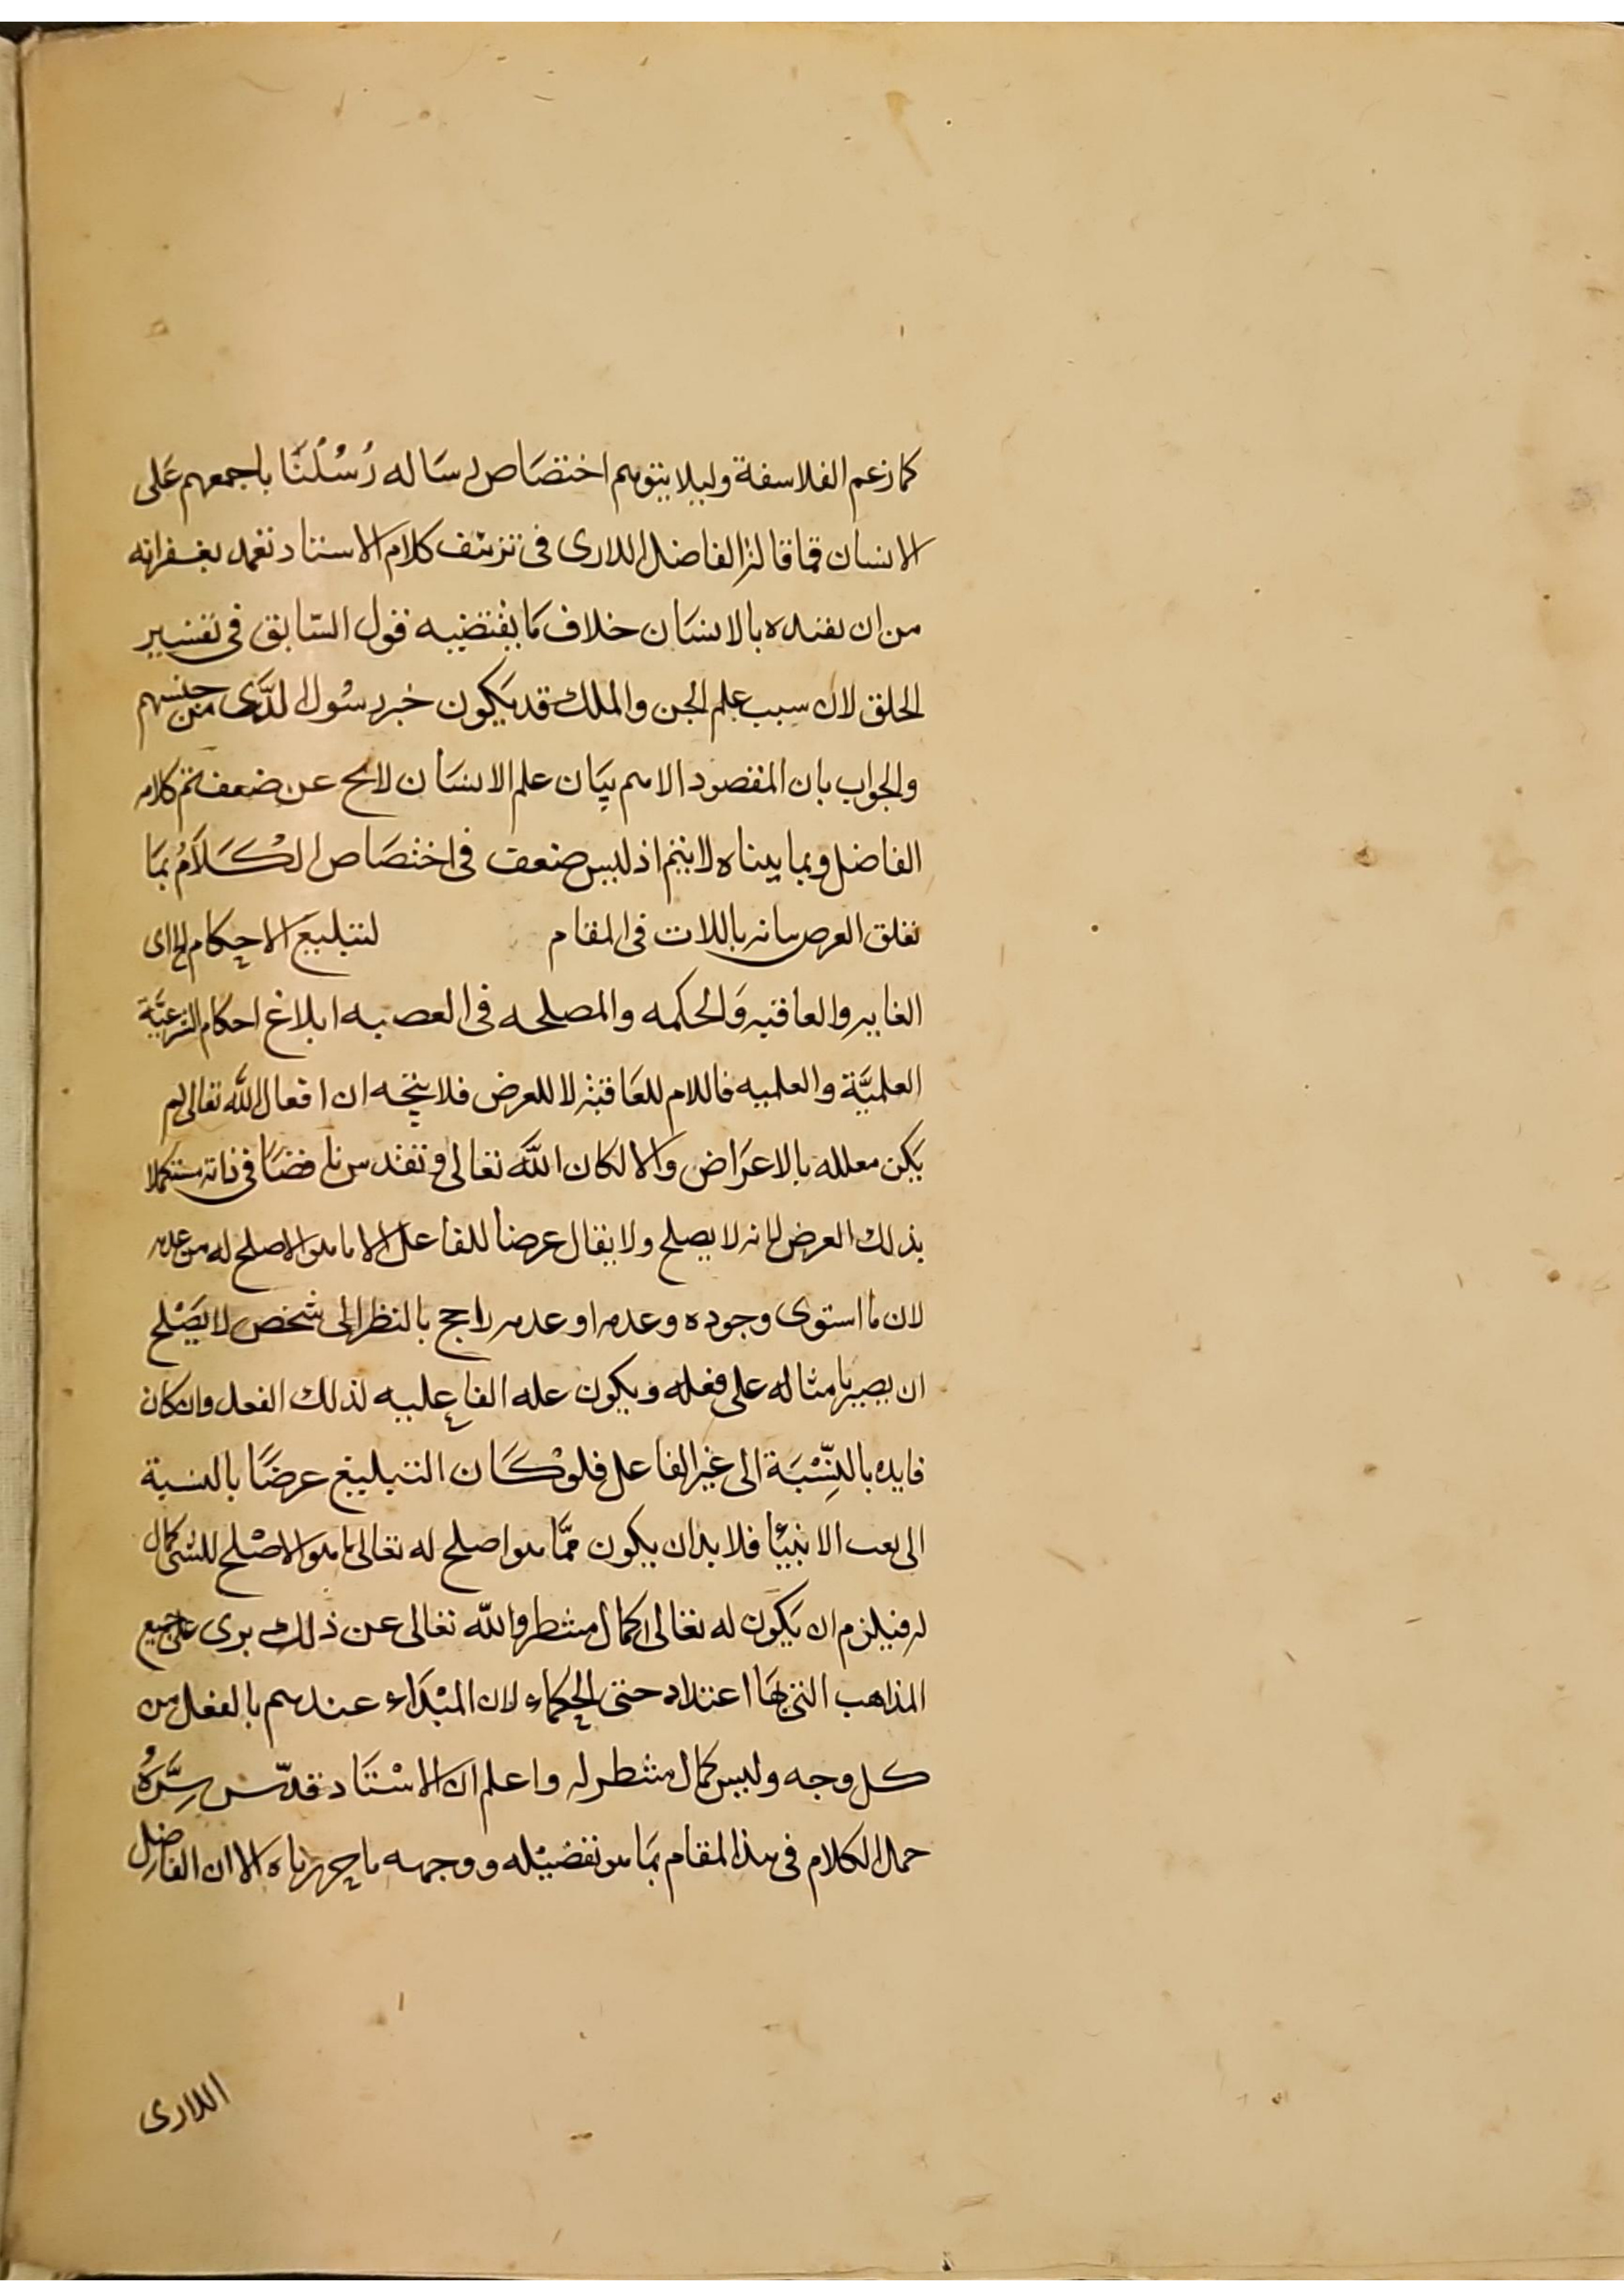 كما زعم الفلاسفة وليلا يتوهم اختصاص رساله رُسُلُنَا باجمعهم عَلى
الانسان فما قاله الفاضل اللارى فى تزييف كلام الاستاد تغمد بغفرانه
من ان تقييده بالانسَان خلاف مَا يقتضيه قول السّابق فى تفسير
الخلق لان سبب علم الجن والملك قد يَكون خبر رسُول الذى من جنسهم
والجواب بان المقصود الاهم بيَان علم الانسَان لايح عن ضعف ثم كلام
الفاضل وبما بيناه لا يتم اذ ليس ضعف فى اختصَاص الكَلَامُ بمَا
تعلق الغرض بيانه بالذات فى المقام لتبليغ الاحكام الخ اى
الغايه والعاقبه وَالحكمه والمصلحه فى البعثه ابلاغ احكام الشرعيَّة
العلميَّة والعلميه فاللام للعَاقبة لا للغرض فلا يتجه ان افعال اللّٰه تعالى لم
يَكن معلله بالاعرَاض والا لكان اللَّه تعالى وتقدس ناقصًا فى ذاته مستكملا
بذلك العرض لانه لا يصلح ولا يقال عرضا للفاعل الا ما هو الاصلح له من عدمه
لان ما استوى وجوده وعدمه او عدمه راجح بالنظر الى شخص لا يَصْلح
ان يصير بامثاله على فعله ويكون عله الفاعليه لذلك الفعل وان كان
فايده بالنِّسْبَة الى غير الفاعل فلوْ كَان التبليغ عرضًا بالنسبة
الى بعث الانبئا فلا بد ان يكون ممّا هو اصلح له تعالى ما هو الاصْلح للشى كمال
له فيلزم ان يَكون له تعالى كمال منتظر واللّه تعالى عن ذلك برى على جميع
المذاهب التى بهَا اعتداد حتى الحكماء لان المبْدَاء عندهم بالفعل من
كل وجه وليس كمال منتظر له واعلم ان الاسْتَاد قدّس سِرَّهُ
حمل الكلام فى هذا المقام بمَا هو تفضيْله ووجهه ما حررناه الا ان الفاضل
اللارى